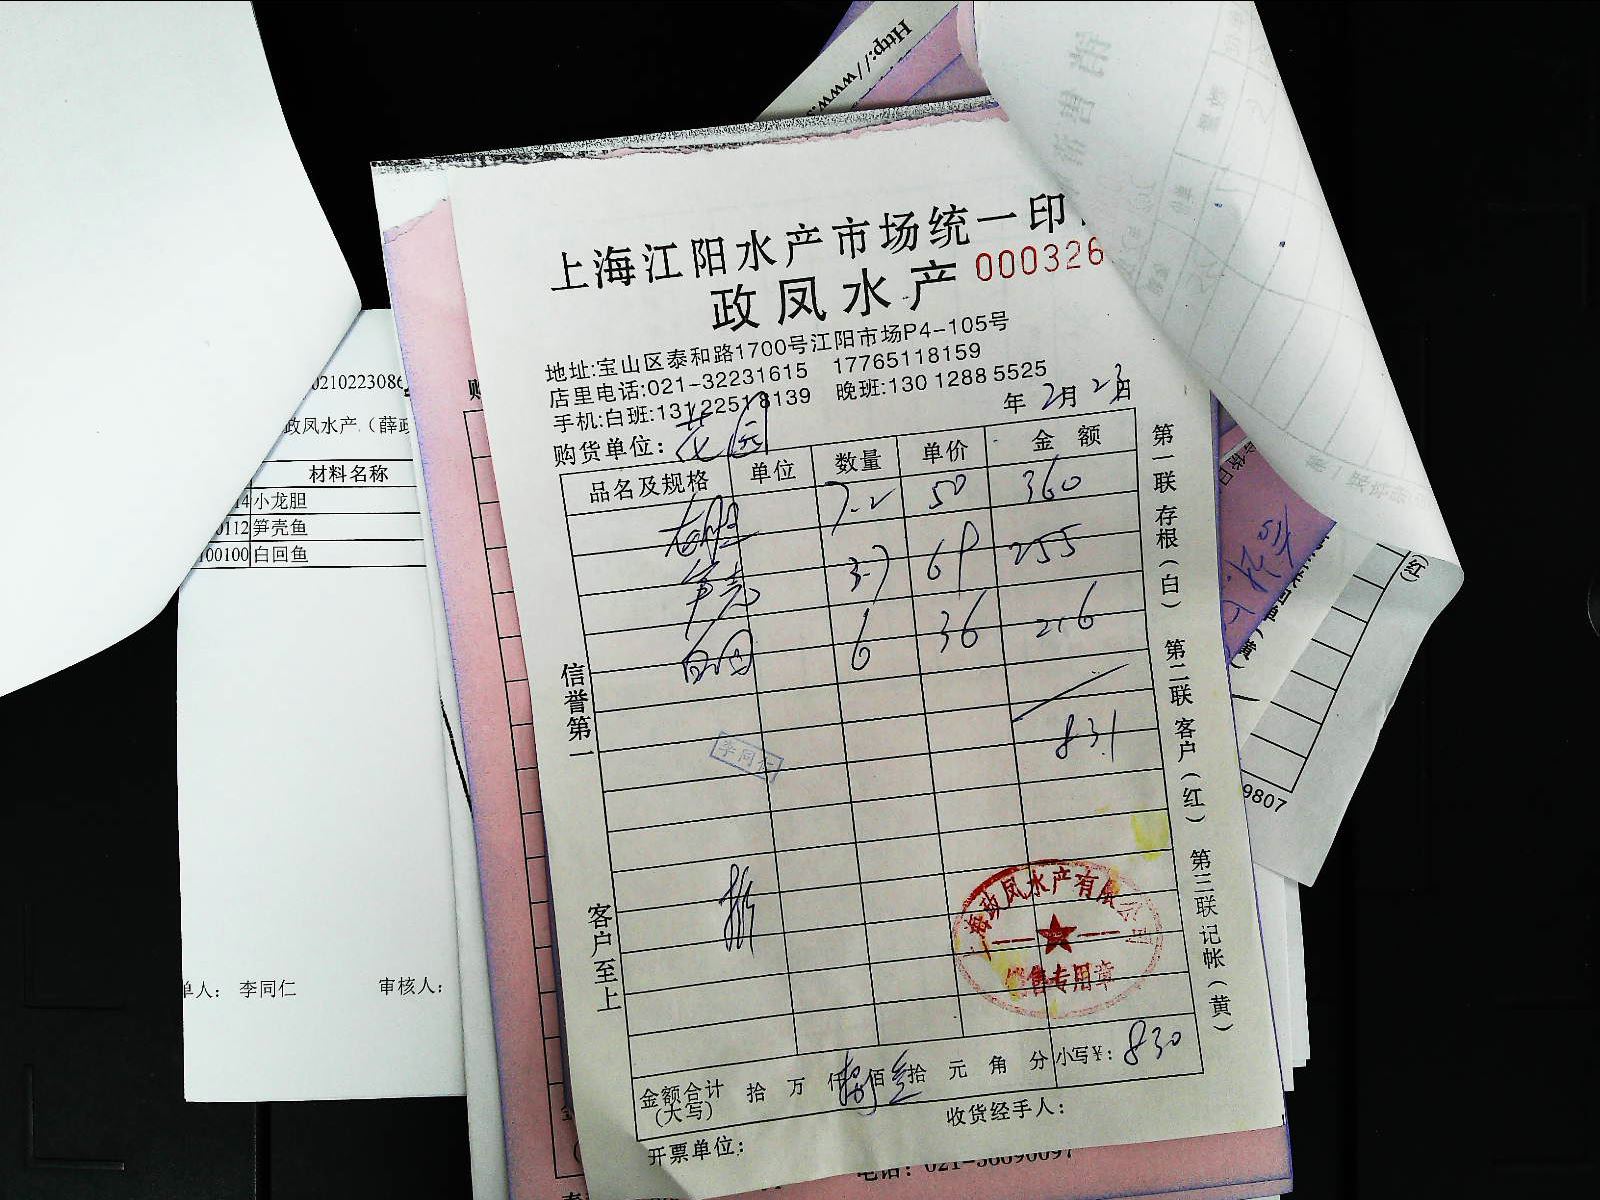 Http://www.
上海江阳水产市场统一印
政凤水产 000326
地址:宝山区泰和路1700号江阳市场P4-105号
店里电话:021-32231615 17765118159
手机:白班:13122518139 晚班:130 1288 5525
购货单位: 花园 年 2月 23日
品名及规格 单位 数量 单价 金额
7.2 50 360
笋壳 3.7 69 255
白回 6 36 216
831
李同仁
信誉第一
客户至上
第一联存根(白) 第二联客户(红) 第三联记帐(黄)
上海政凤水产有限公司
销售专用章
金额合计(大写) 拾 万 仟 捌佰 叁拾 元 角 分 小写¥: 830
开票单位: 收货经手人:
0210223086
政凤水产 (薛政
材料名称
14 小龙胆
0112 笋壳鱼
100100 白回鱼
单人: 李同仁 审核人:
购
9807
(红)
电话: 021-56690097